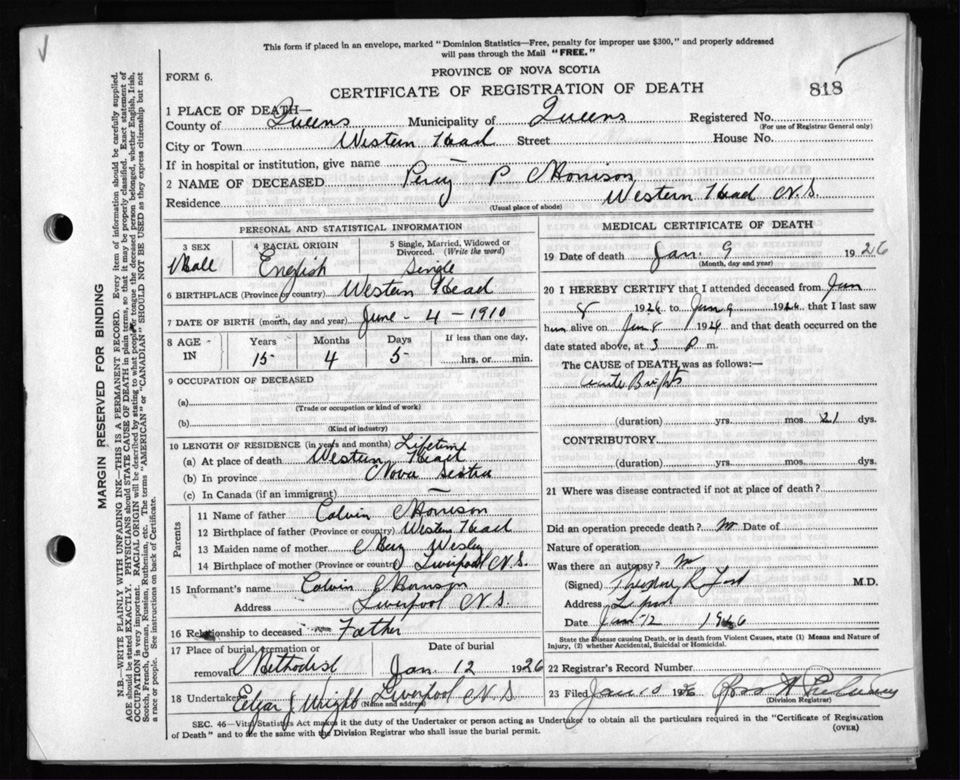 This form if placed in an envelope, marked "Dominion Statistics—Free, penalty for improper use $300," and properly addressed
will pass through the Mail "FREE."
FORM 6.
PROVINCE OF NOVA SCOTIA
CERTIFICATE OF REGISTRATION OF DEATH
818
1 PLACE OF DEATH—
County of Queens Municipality of Queens Registered No.
(For use of Registrar General only)
City or Town Western Head Street House No.
If in hospital or institution, give name —
2 NAME OF DECEASED Percy P Morrison
Residence Western Head N.S.
(Usual place of abode)
PERSONAL AND STATISTICAL INFORMATION
3 SEX 4 RACIAL ORIGIN 5 Single, Married, Widowed or
Divorced. (Write the word)
Male English Single
6 BIRTHPLACE (Province or country) Western Head
7 DATE OF BIRTH (month, day and year) June - 4 - 1910
8 AGE Years Months Days If less than one day,
IN 15 4 5 hrs. or min.
9 OCCUPATION OF DECEASED
(a)
(Trade or occupation or kind of work)
(b)
(Kind of industry)
10 LENGTH OF RESIDENCE (in years and months) Lifetime
(a) At place of death Western Head
(b) In province Nova Scotia
(c) In Canada (if an immigrant) —
Parents
11 Name of father Colvin Morrison
12 Birthplace of father (Province or country) Western Head
13 Maiden name of mother Wesley
14 Birthplace of mother (Province or country) Liverpool N.S.
15 Informant's name Colvin Morrison
Address Liverpool N.S.
16 Relationship to deceased Father
17 Place of burial, cremation or Date of burial
removal Methodist Jan. 12 1926
18 Undertaker Edgar J Wright Liverpool N.S
(Name and address)
MEDICAL CERTIFICATE OF DEATH
19 Date of death Jan. 9 1926
(Month, day and year)
20 I HEREBY CERTIFY that I attended deceased from Jan
8 1926 to Jan 9 1926 that I last saw
him alive on Jan 8 1926 and that death occurred on
date stated above, at 3 P m.
The CAUSE OF DEATH was as follows:—
Acute Brights
(duration) yrs. mos. 21 dys.
CONTRIBUTORY
(duration) yrs. mos. dys.
21 Where was disease contracted if not at place of death?
Did an operation precede death? no Date of
Nature of operation
Was there an autopsy? no
(Signed) M.D.
Address
Date Jan 12 1926
State the Disease causing Death, or in death from Violent Causes, state (1) Means and Nature of
Injury, (2) whether Accidental, Suicidal or Homicidal.
22 Registrar's Record Number
23 Filed Jan 10 1926
(Division Registrar)
SEC. 46—Vital Statistics Act makes it the duty of the Undertaker or person acting as Undertaker to obtain all the particulars required in the "Certificate of Registration
of Death" and to file the same with the Division Registrar who shall issue the burial permit.
(OVER)
MARGIN RESERVED FOR BINDING
N.B.—WRITE PLAINLY WITH UNFADING INK—THIS IS A PERMANENT RECORD. Every item of information should be carefully supplied.
AGE should be stated EXACTLY. PHYSICIANS should STATE CAUSE OF DEATH in plain terms, so that it may be properly classified. Exact statement of
OCCUPATION is very important. RACIAL ORIGIN will be described by stating to what people or tongue the deceased person belonged, whether English, Irish,
Scotch, French, German, Russian, Ruthenian, etc. The terms "AMERICAN" or "CANADIAN" SHOULD NOT BE USED as they express citizenship but not
a race or people. See instructions on back of Certificate.